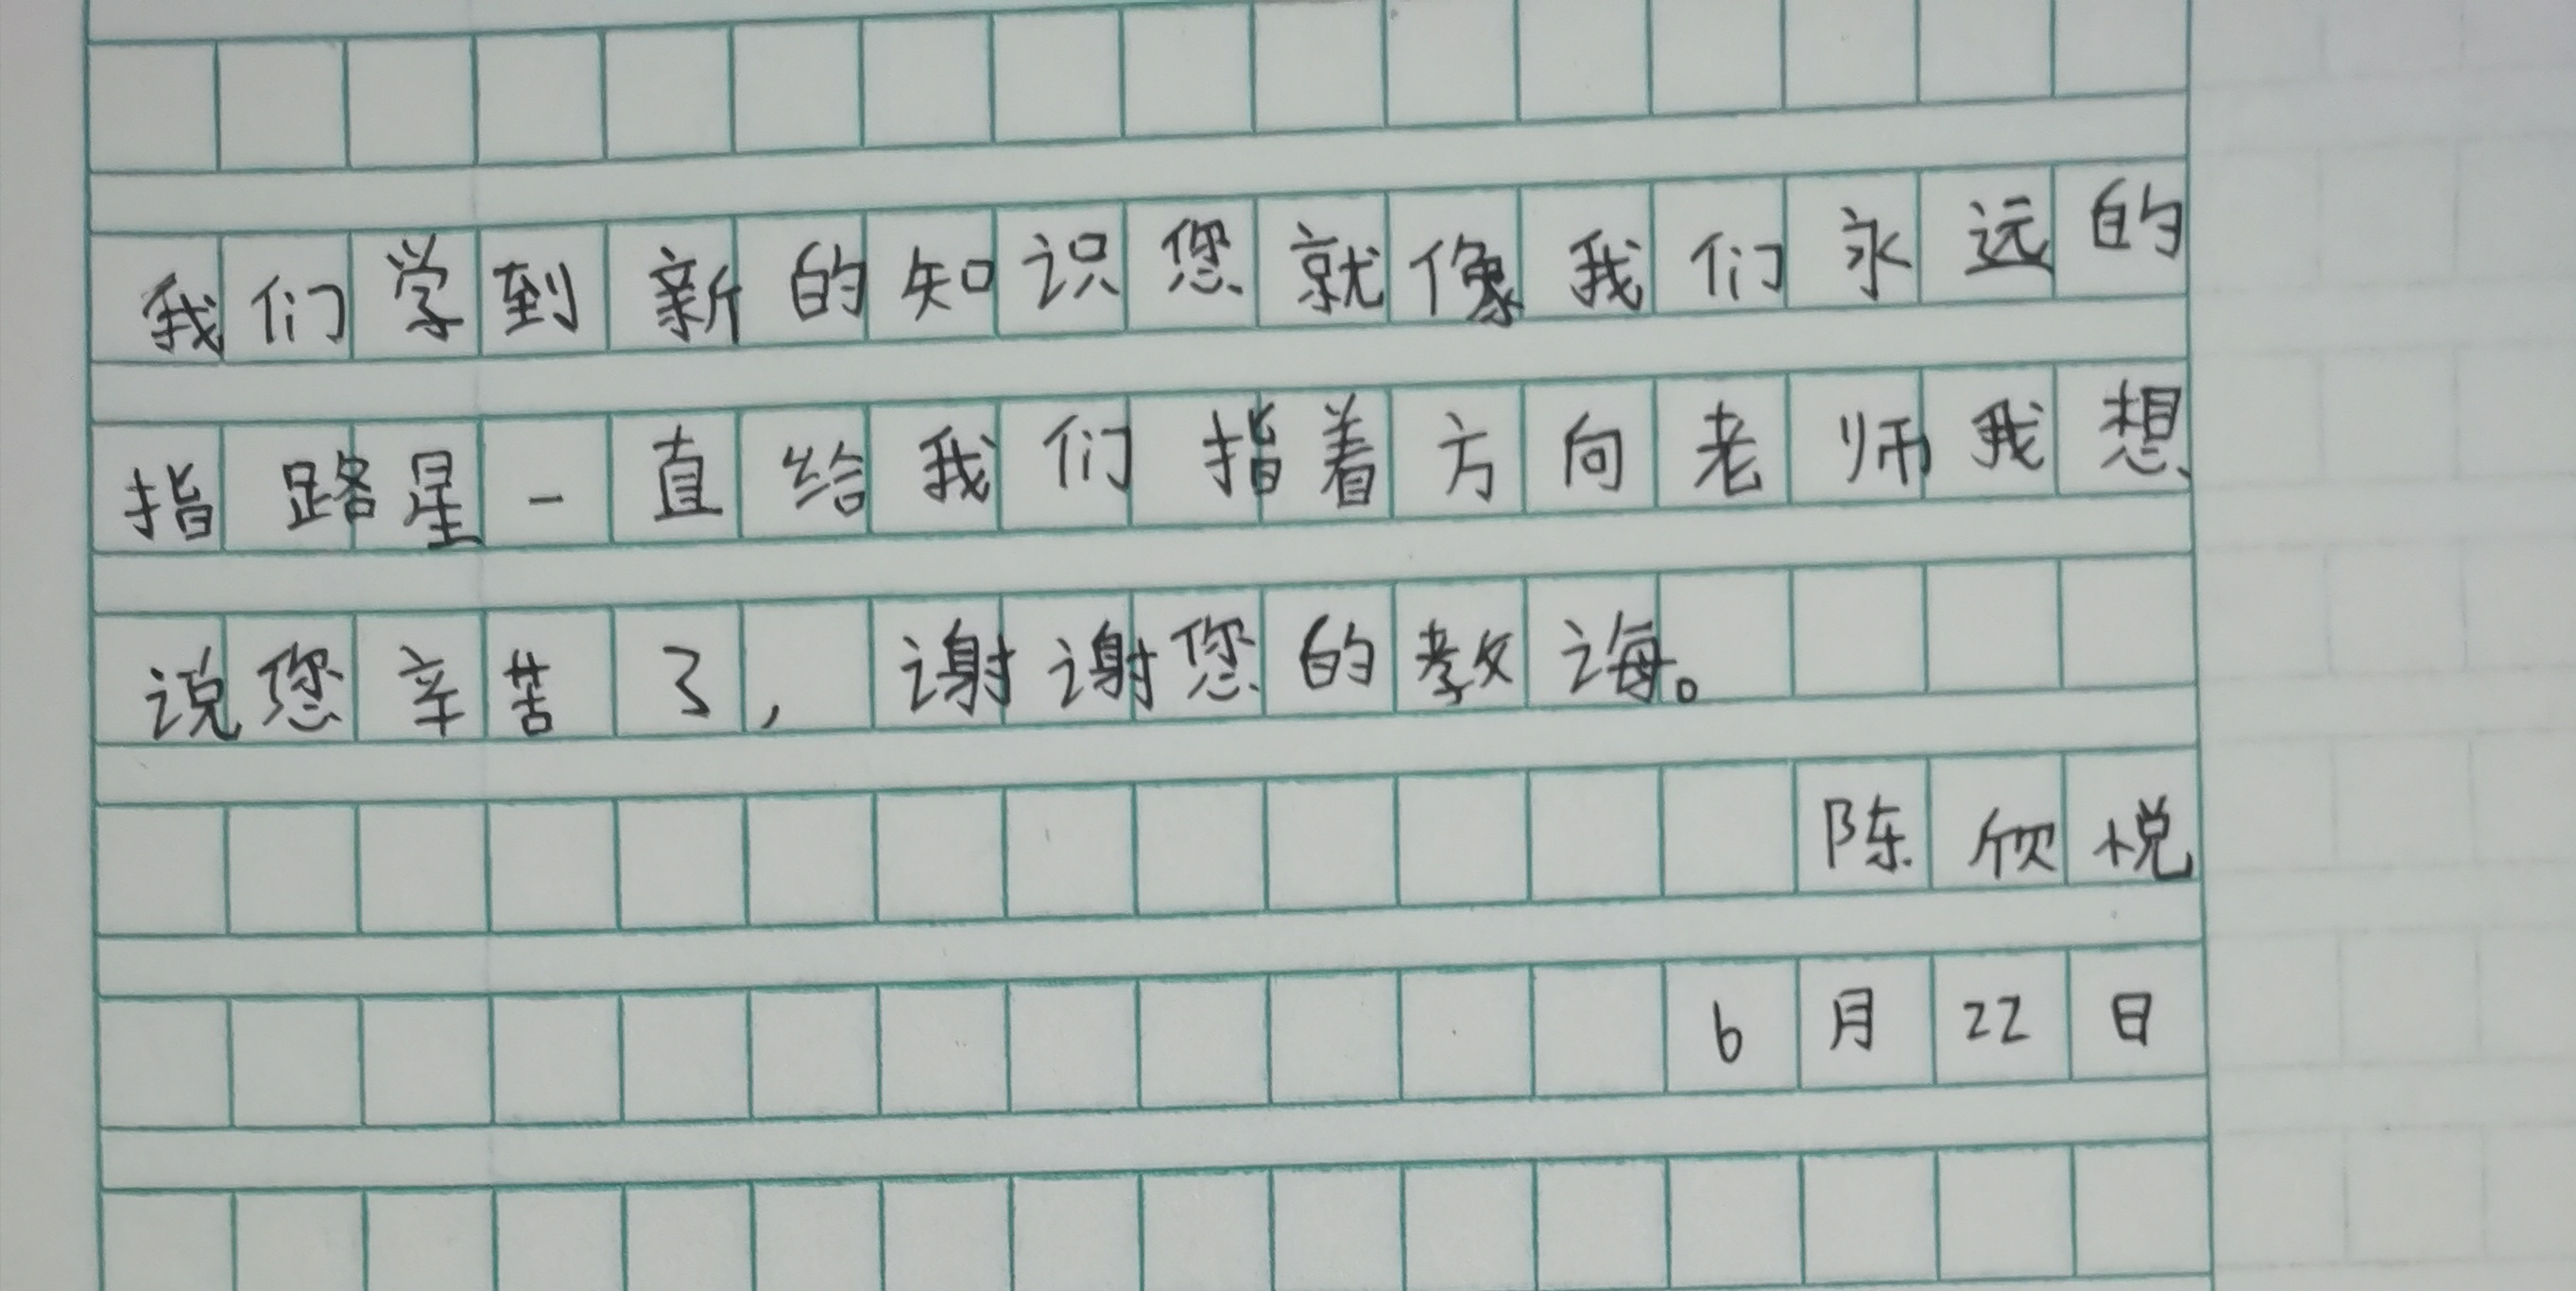 我们学到新的知识您就像我们永远的
指路星一直给我们指着方向老师我想
说您辛苦了，谢谢您的教诲。
陈欣悦
6月22日